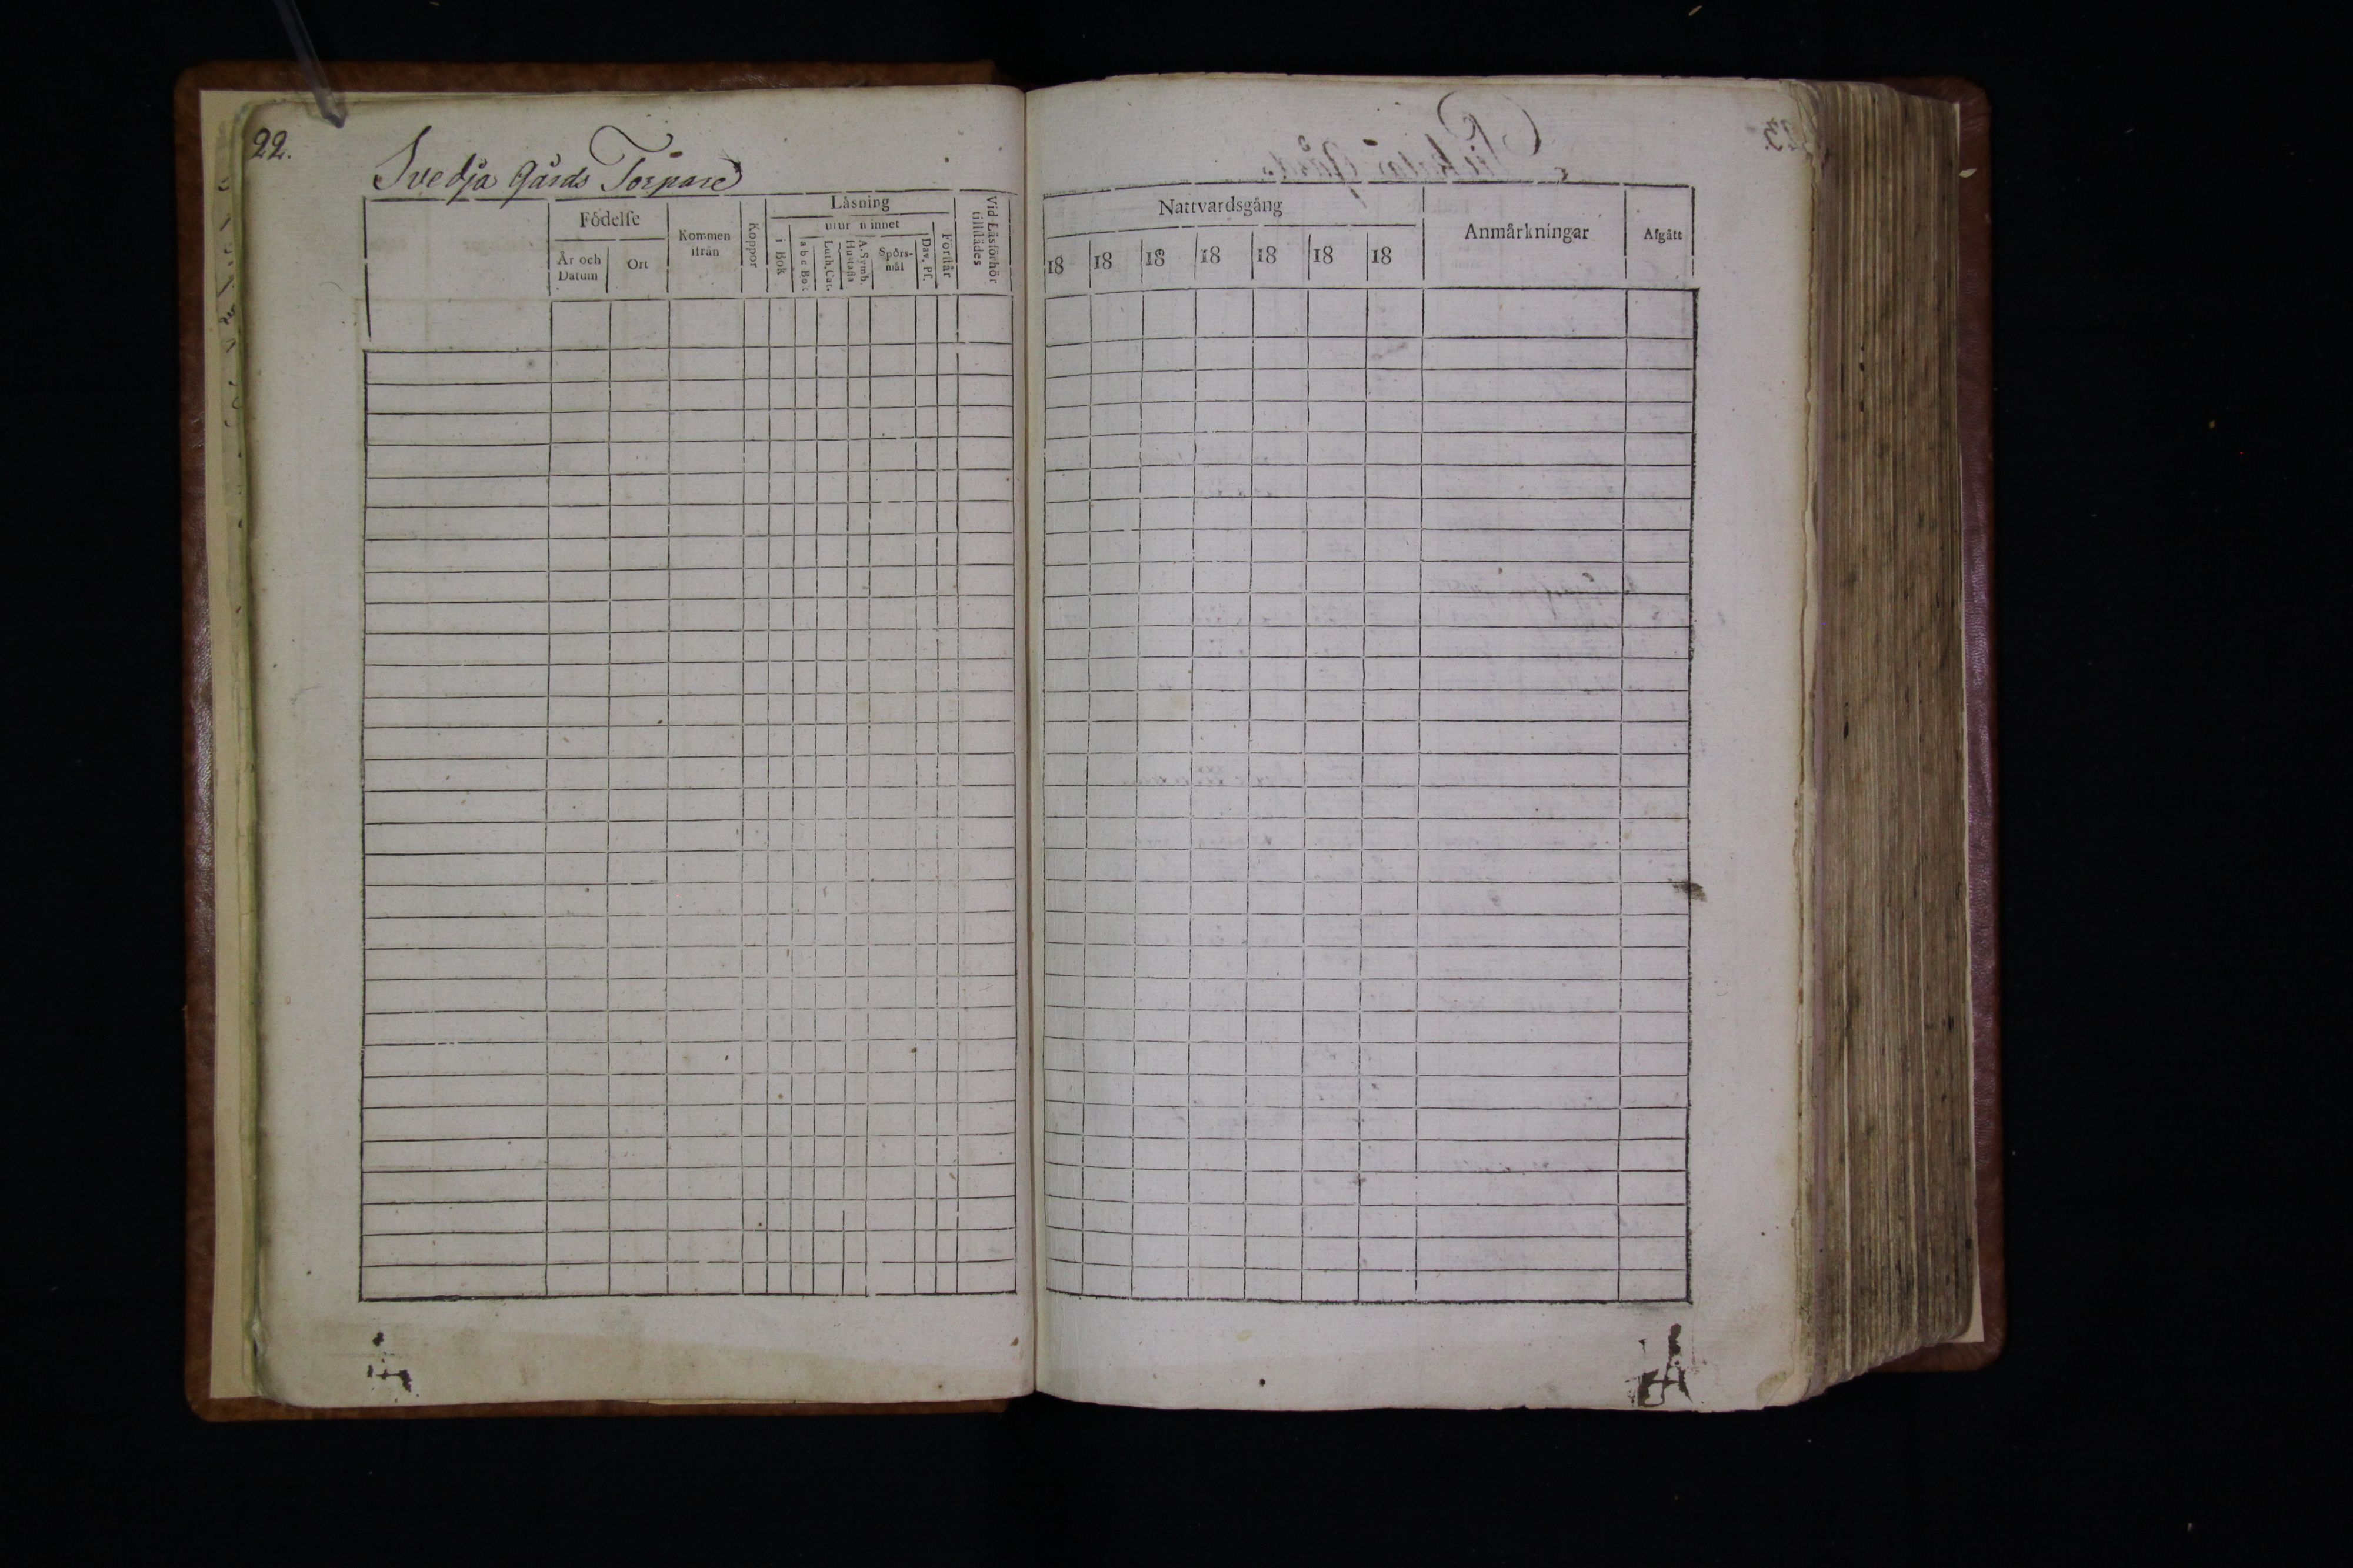 22.
Svedja Gårds Torpare
Födelse
År och Datum
Ort
Kommen ifrån
Koppor
Läsning
utur minnet
i Bok
a b c Bok
Luth. Cat.
A. Symb. Hustafla
Spörs-mål
Dav. Pf.
Förstår
Vid Läsförhör tillstädes
Nattvardsgång
18 18 18 18 18 18 18
Anmärkningar
Afgått